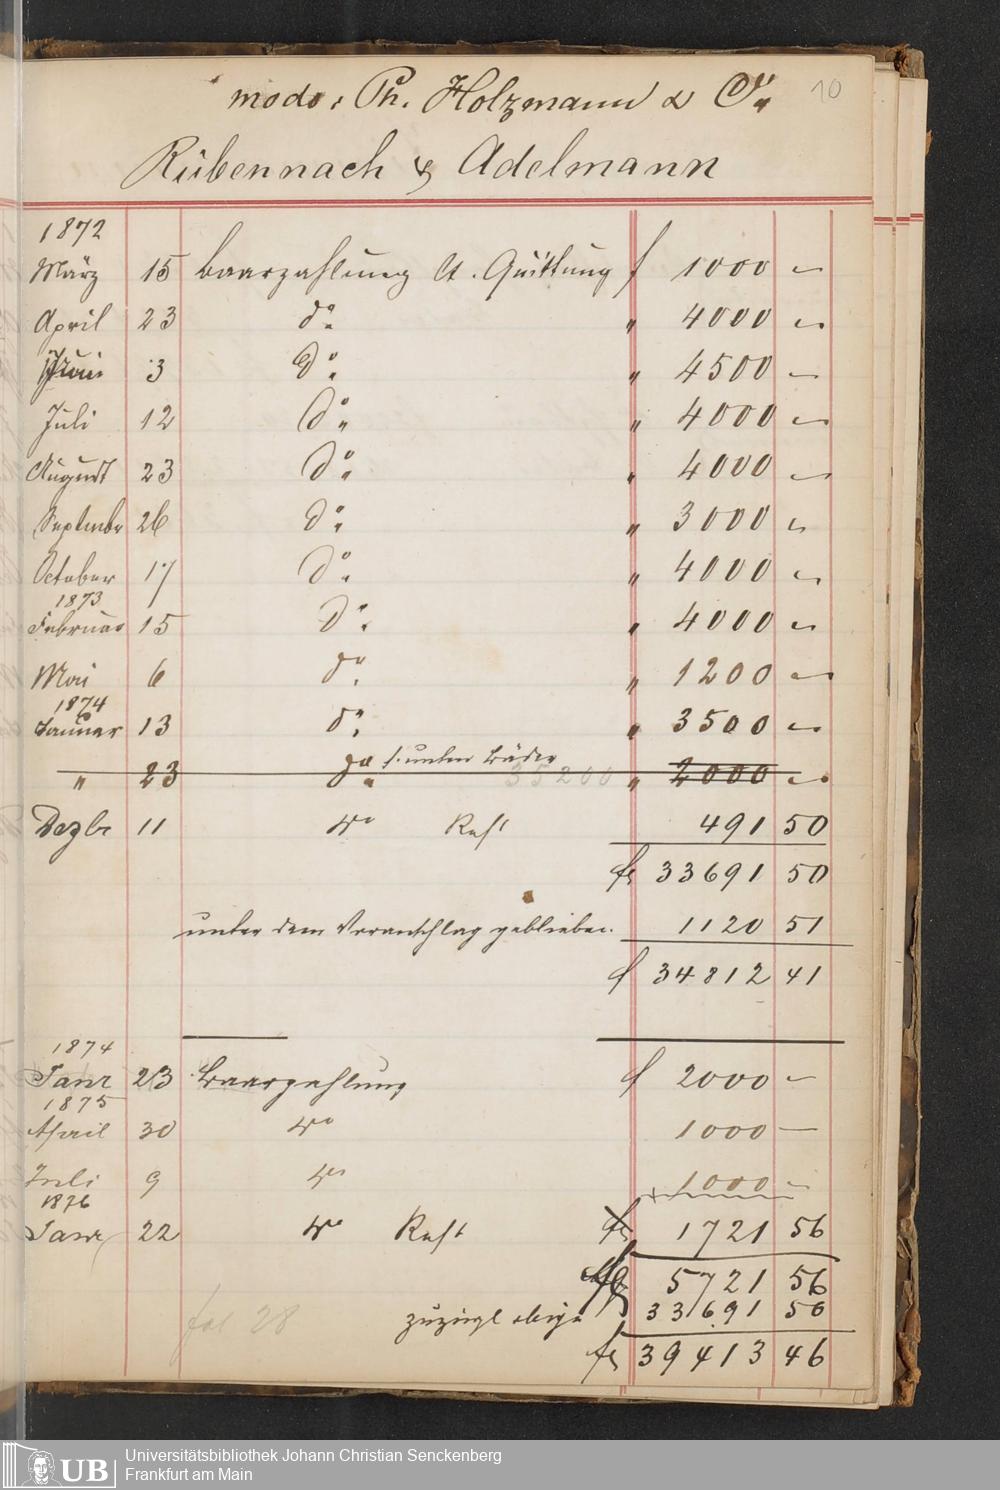 modo: Ph. Holzmann & Cie
10
Rübennach & Adelmann
1872
März 15 Baarzahlung lt. Quittung f 1000 —
April 23 do. " 4000 —
Juni 3 do. " 4500 —
Juli 12 do. " 4000 —
August 23 do. " 4000 —
Septembr 26 do. " 3000 —
October 17 do. " 4000 —
1873
Februar 15 do. " 4000 —
Mai 6 do. " 1200 —
1874
Januar 13 do. " 3500 —
" 23 do. s. unten 35200 " 2000 —
Dezbr 11 do Rest 491 50
fl 33691 50
unter dem Voranschlag geblieben. 1120 51
f 34812 41
1874
Janr 23 Baarzahlung f 2000 —
1875
April 30 do 1000 —
Juli 9 do 1000 —
1876
Janr 22 do Rest fl 1721 56
5721 56
fol 28 zuzügl obige 33691 50
fl 39413 46
Universitätsbibliothek Johann Christian Senckenberg
Frankfurt am Main
UB